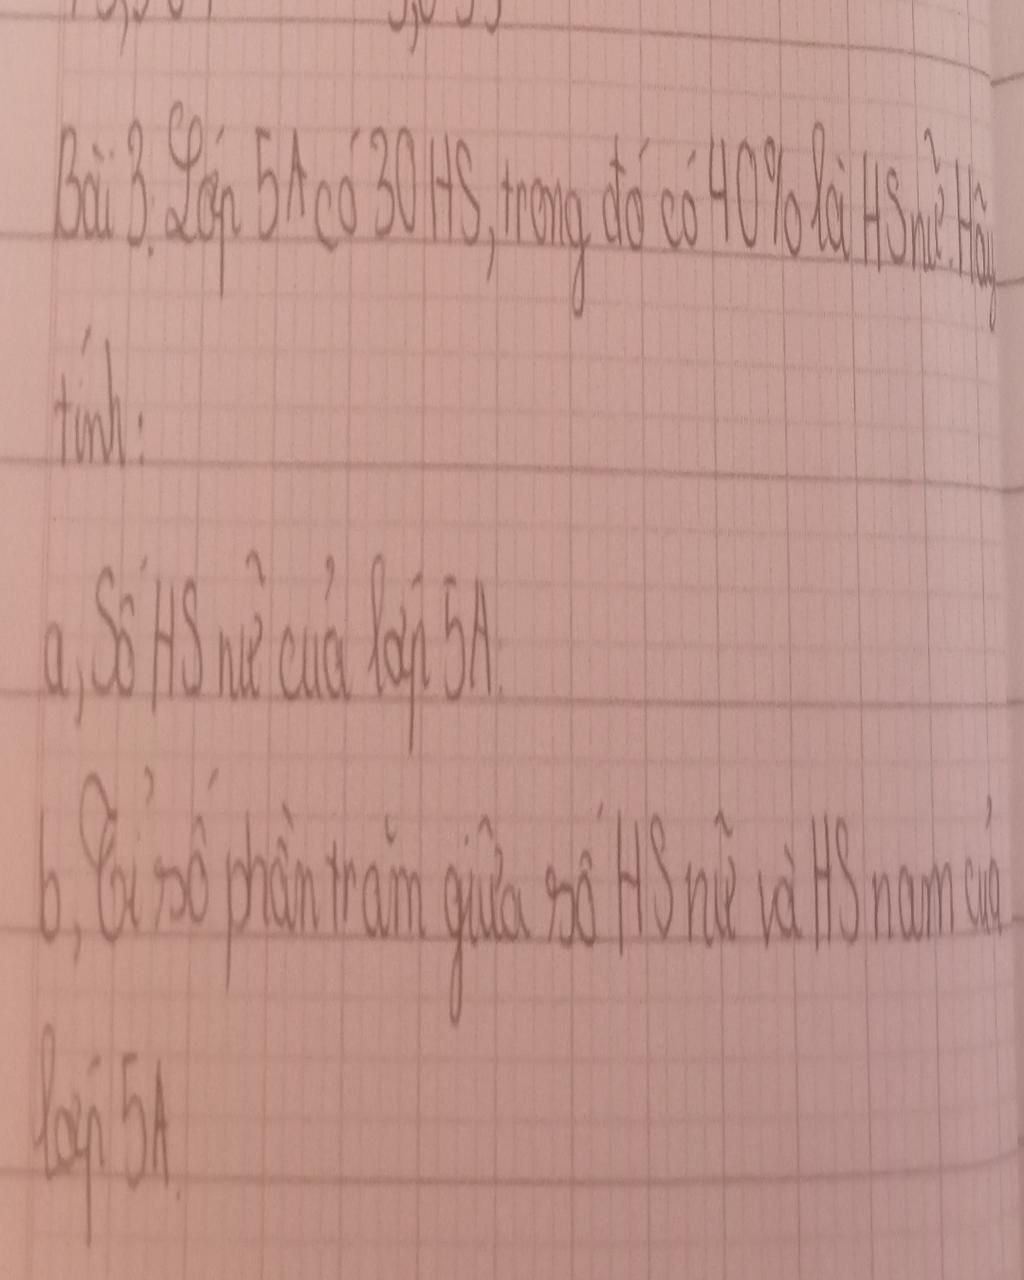 Bài 3. Lớp 5A có 30 HS, trong đó có 40% là HS nữ. Hãy
tính:
a, Số HS nữ của lớp 5A.
b, Tỉ số phần trăm giữa số HS nữ và HS nam của
lớp 5A.